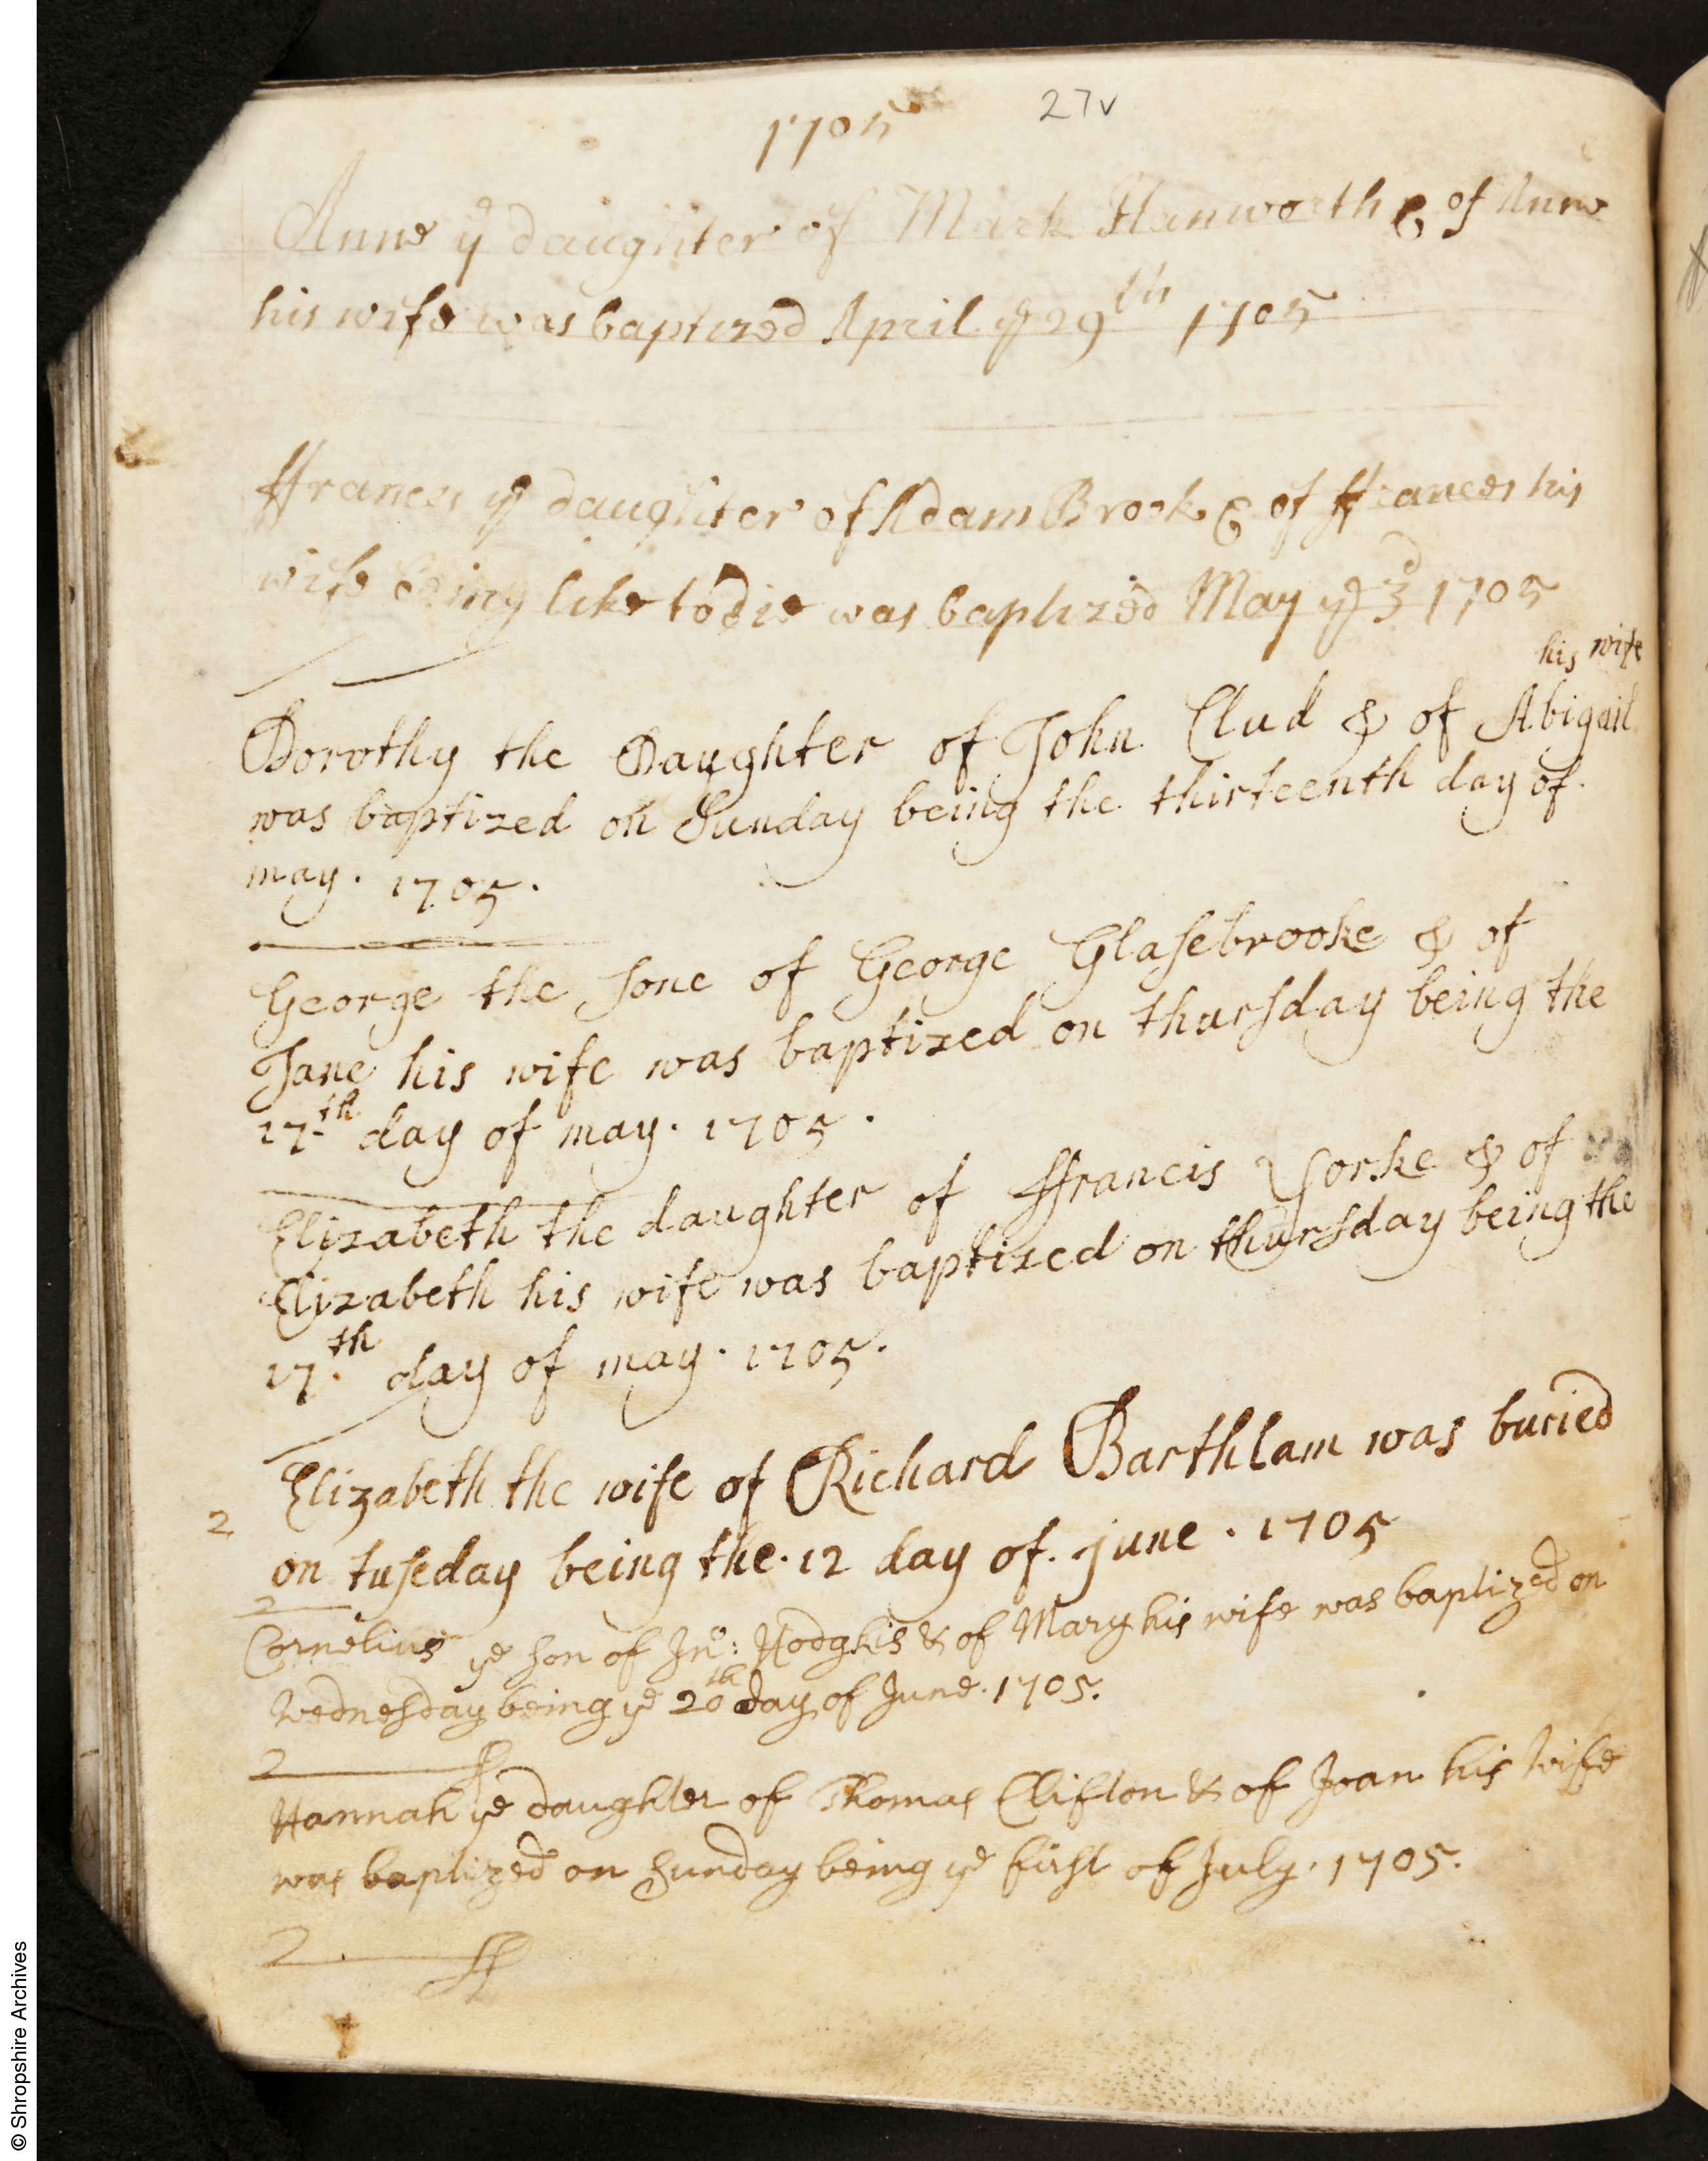 1705
27v
Anne ye daughter of Mark Hanworth & of Anne
his wife was baptized April ye 29th 1705
ffrances ye daughter of Adam Brook & of ffrances his
wife being like to die was baptized May ye 3d 1705
his wife
Dorothy the Daughter of John Clud & of Abigail
was baptized on Sunday being the thirteenth day of.
may. 1705.
George the sone of George Glasebrooke & of
Jane his wife was baptized on thursday being the
17th day of may. 1705.
Elizabeth the daughter of ffrancis Yorke & of
Elizabeth his wife was baptized on thursday being the
17.th day of may. 1705.
Elizabeth the wife of Richard Barthlam was buried
2
on tuseday being the. 12 day of. june. 1705
2
Cornelius ye son of Jno: Hodgkis & of Mary his wife was baptized on
Wednesday being ye 20th day of June. 1705.
2
Hannah ye daughter of Thomas Clifton & of Joan his Wife
was baptized on Sunday being ye first of July. 1705.
2
© Shropshire Archives